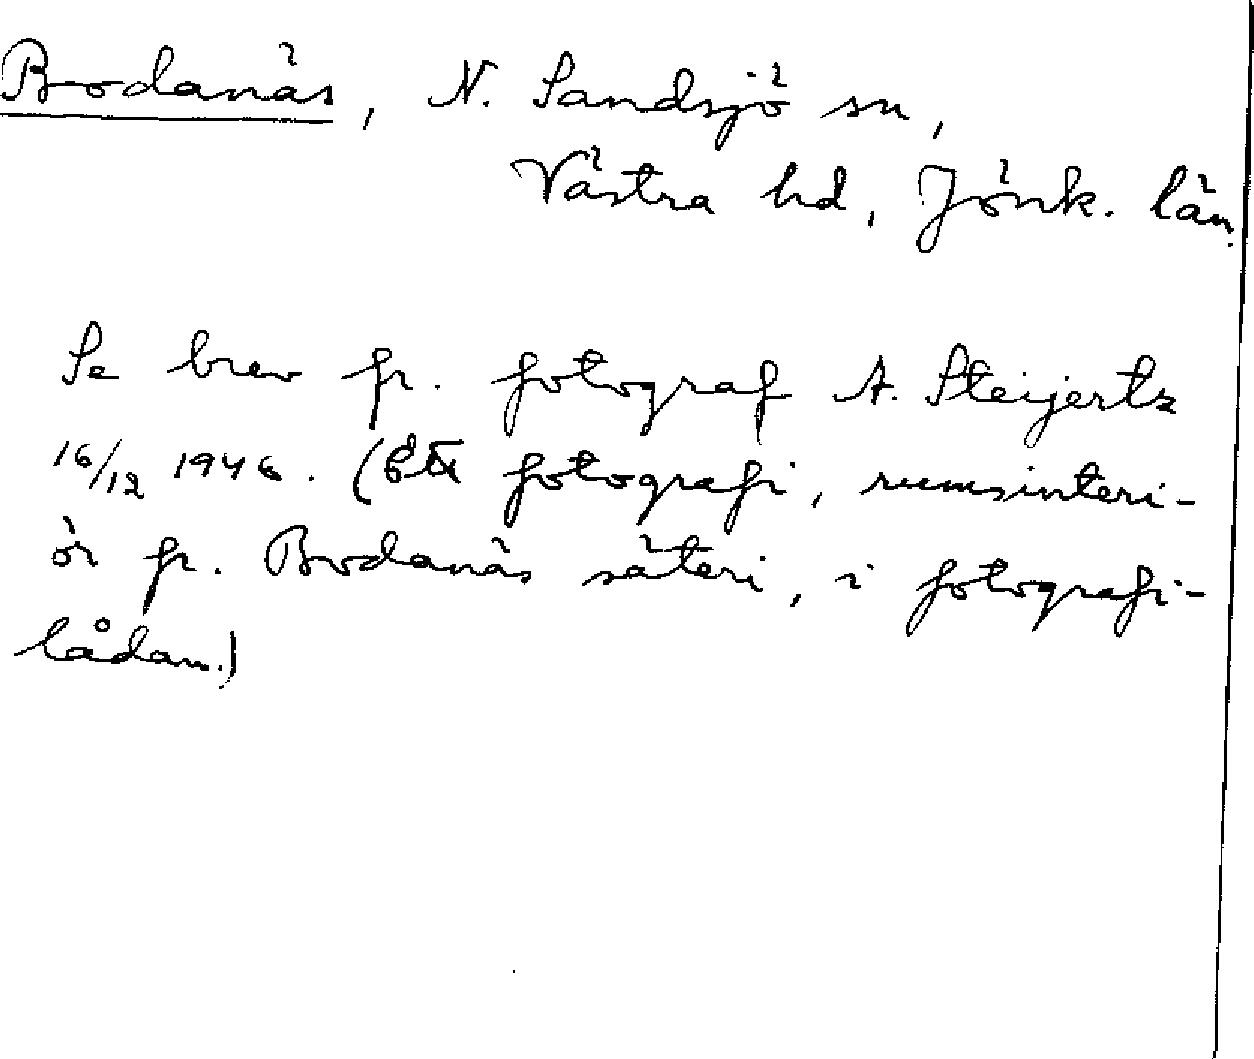 Brodanäs, N. Sandsjö sn,
Västra hd, Jönk. län.
Se brev fr. fotograf A. Steijertz
16/12 1946. (Ett fotografi, rumsinteri-
ör fr. Brodanäs säteri, i fotografi-
lådan.)